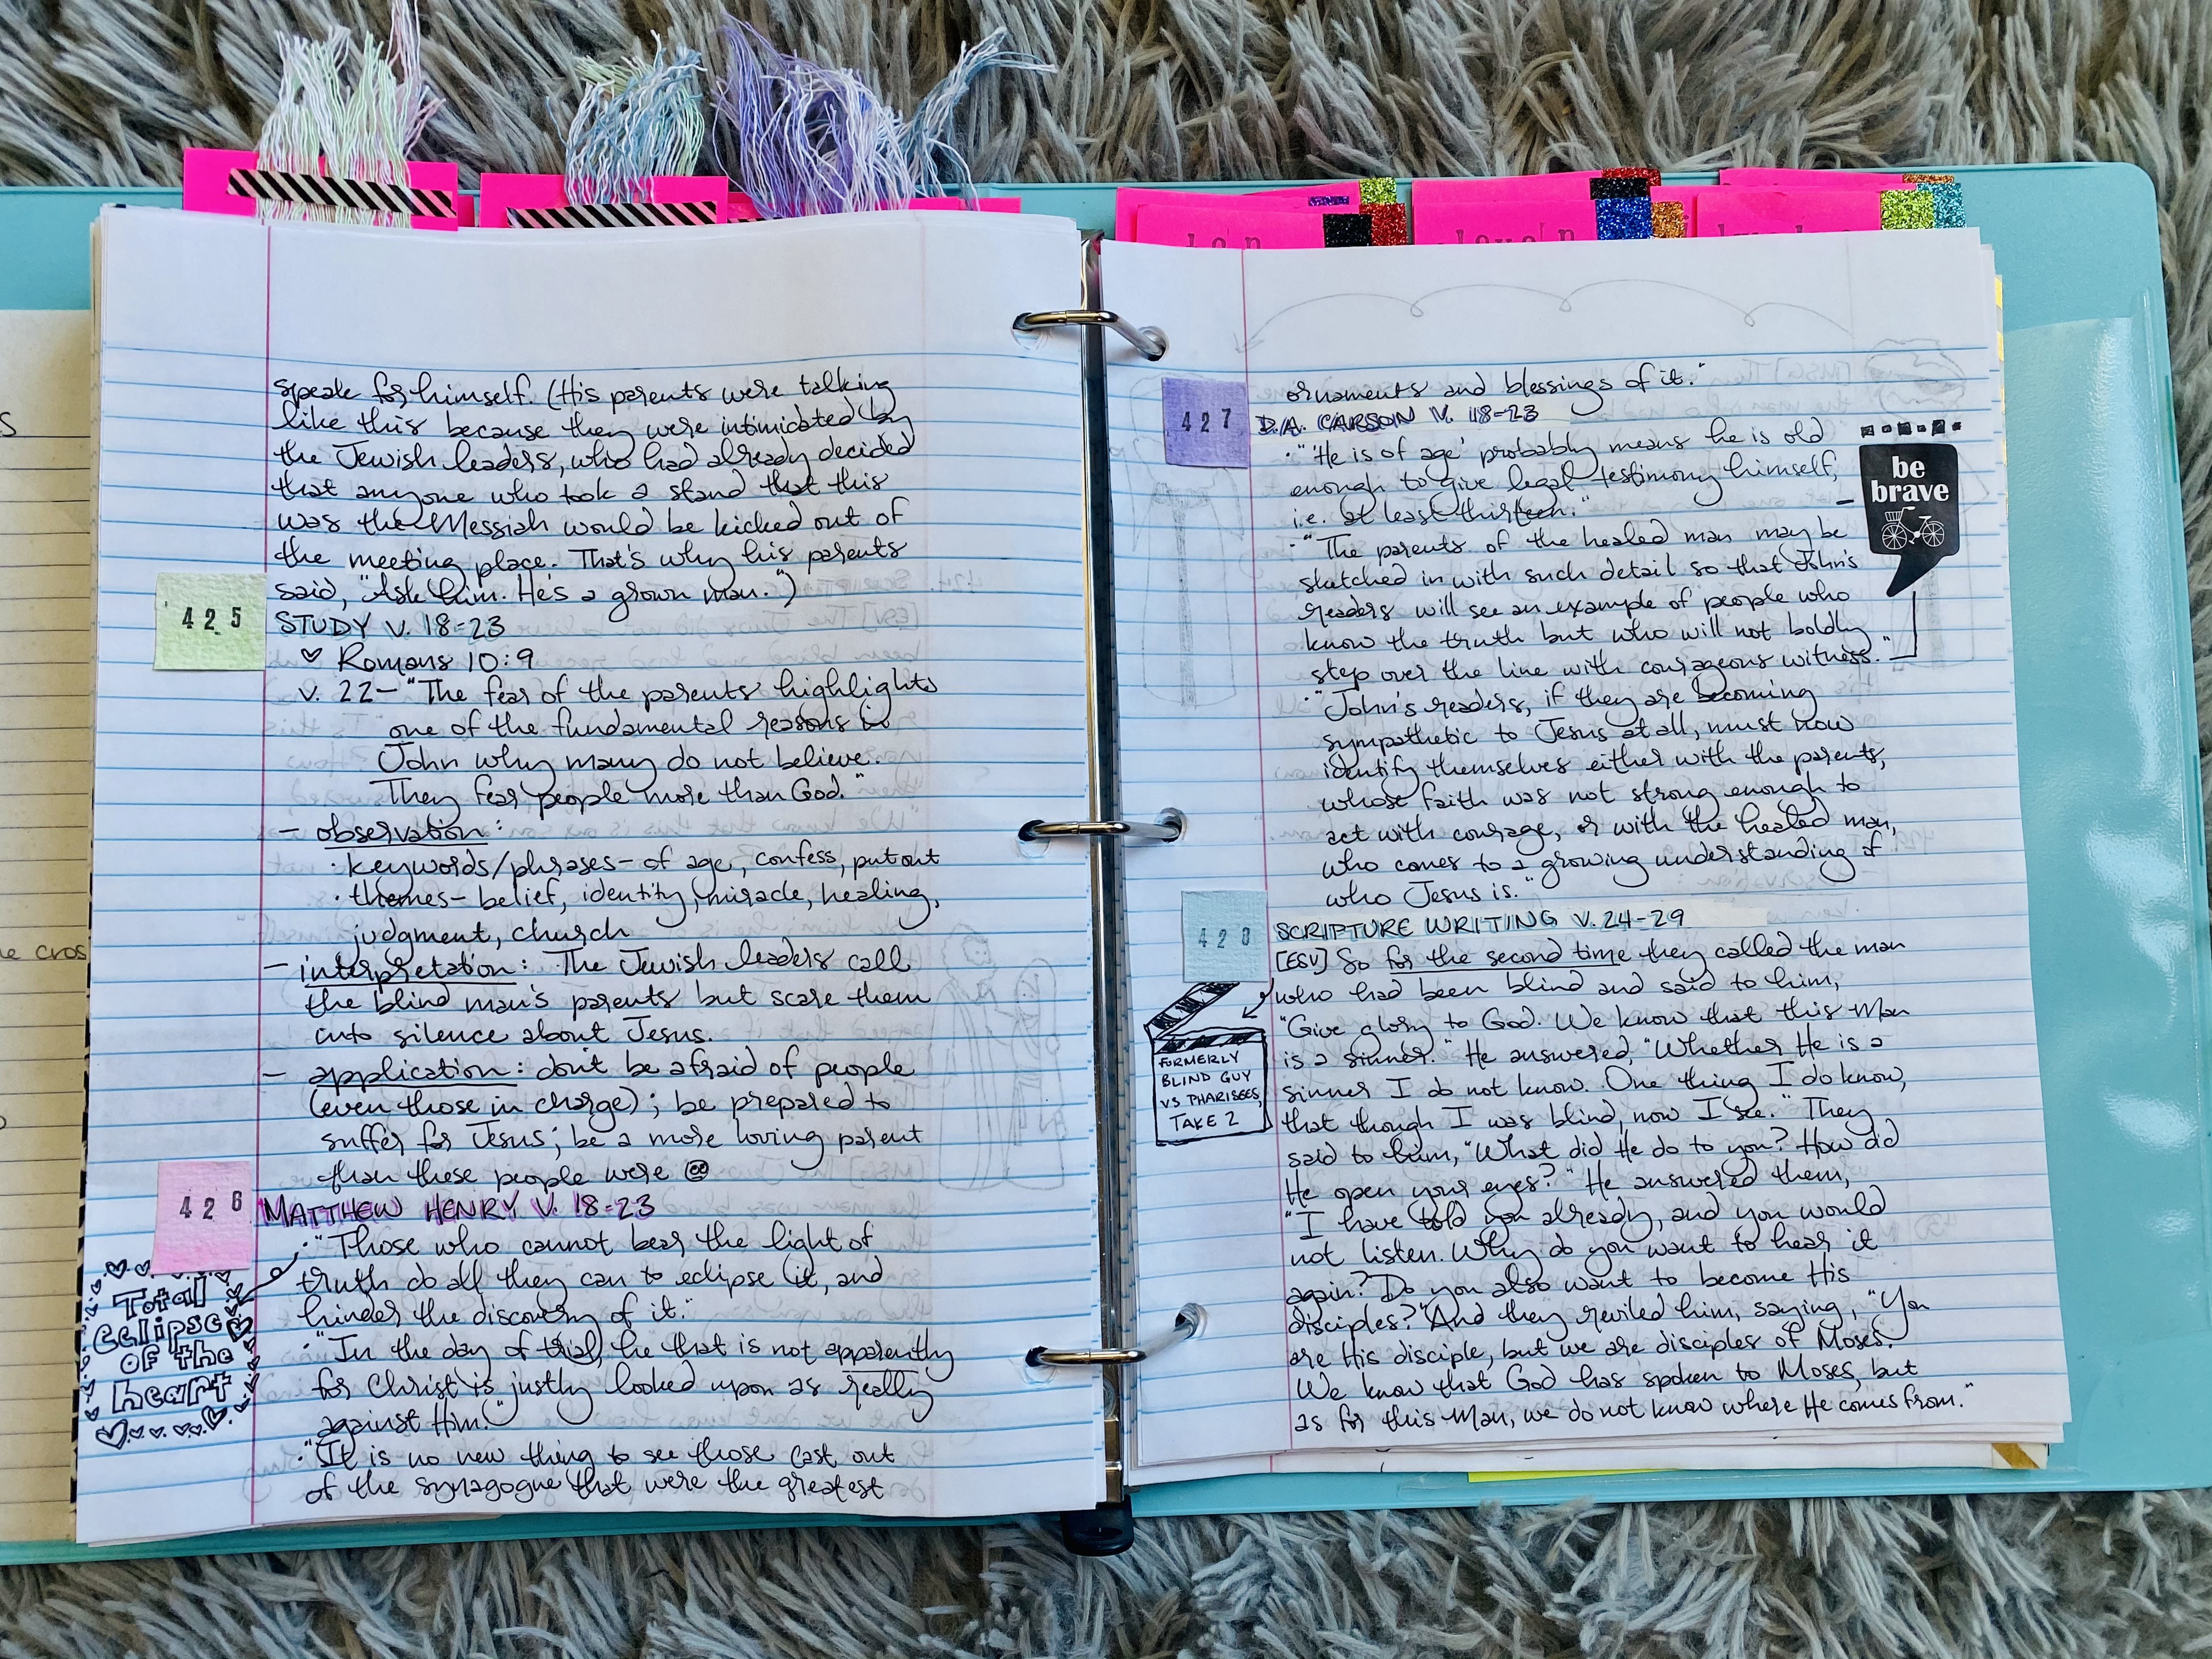 speak for himself. (His parents were talking
like this because they were intimidated by
the Jewish leaders, who had already decided
that anyone who took a stand that this
was the Messiah would be kicked out of
the meeting place. That's why his parents
said, "Ask him. He's a grown man.")
425
STUDY V. 18-23
♡ Romans 10:9
v. 22- "The fear of the parents highlights
one of the fundamental reasons in
John why many do not believe.
They fear people more than God."
- observation:
· keywords/phrases- of age, confess, put out
· themes- belief, identity, miracle, healing,
judgment, church
- interpretation: The Jewish leaders call
the blind man's parents but scare them
into silence about Jesus.
- application: don't be afraid of people
(even those in charge); be prepared to
suffer for Jesus; be a more loving parent
than these people were
426
MATTHEW HENRY V. 18-23
· "Those who cannot bear the light of
truth do all they can to eclipse it, and
hinder the discovery of it."
· "In the day of trial, he that is not apparently
for Christ is justly looked upon as really
against Him."
· "It is no new thing to see those cast out
of the synagogue that were the greatest
Total
eclipse
of the
heart
ornaments and blessings of it."
427
D.A. CARSON V. 18-23
· "'He is of age' probably means he is old
enough to give legal testimony himself,
i.e. at least thirteen."
· "The parents of the healed man may be
sketched in with such detail so that John's
readers will see an example of people who
know the truth but who will not boldly
step over the line with courageous witness."
· "John's readers, if they are becoming
sympathetic to Jesus at all, must now
identify themselves either with the parents,
whose faith was not strong enough to
act with courage, or with the healed man,
who comes to a growing understanding of
who Jesus is."
be
brave
428
SCRIPTURE WRITING V. 24-29
[ESV] So for the second time they called the man
who had been blind and said to him,
"Give glory to God. We know that this Man
is a sinner." He answered, "Whether He is a
sinner I do not know. One thing I do know,
that though I was blind, now I see." They
said to him, "What did He do to you? How did
He open your eyes?" He answered them,
"I have told you already, and you would
not listen. Why do you want to hear it
again? Do you also want to become His
disciples?" And they reviled him, saying, "You
are His disciple, but we are disciples of Moses.
We know that God has spoken to Moses, but
as for this Man, we do not know where He comes from."
FORMERLY
BLIND GUY
VS PHARISEES,
TAKE 2